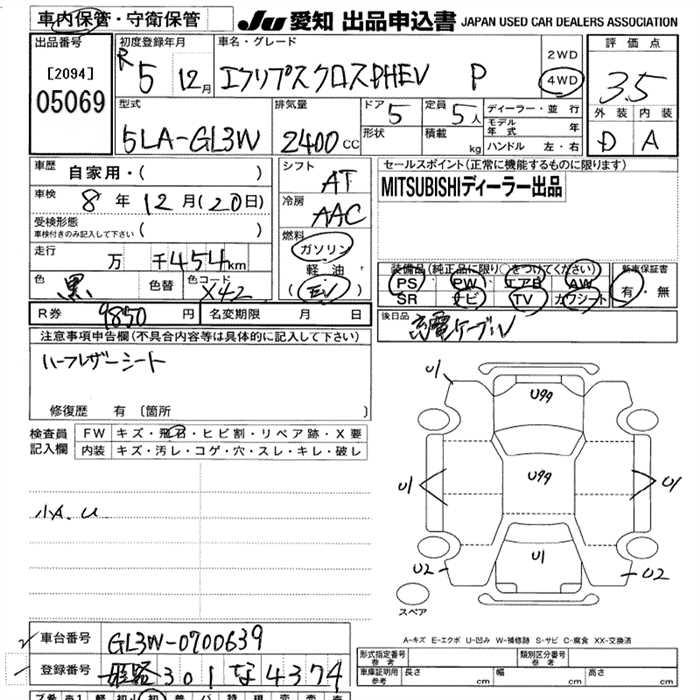 車内保管・守衛保管
JU 愛知 出品申込書 JAPAN USED CAR DEALERS ASSOCIATION
出品番号
[2094]
05069
初度登録年月
R5 12月
車名・グレード
エクリプスクロスPHEV P
2WD
4WD
評価点
3.5
外装 内装
D A
型式
5LA-GL3W
排気量
2400cc
ドア
5
形状
定員
5人
積載
kg
ディーラー・並行
モデル年式 年
ハンドル 左・右
車歴
自家用・( )
車検
8年12月(20日)
受検形態
車検付きのみ記入して下さい ( )
走行
万 千454km
色
黒
色替
色コード
X42
シフト
AT
冷房
AAC
燃料
ガソリン
軽油
(EV)
セールスポイント(正常に機能するものに限ります)
MITSUBISHIディーラー出品
装備品(純正品に限り○をつけてください)
PS PW エアB AW
SR ナビ TV カワシート
新車保証書
有・無
R券 9850円
名変期限 月 日
後日品
充電ケーブル
注意事項申告欄(不具合内容等は具体的に記入して下さい)
ハーフレザーシート
修復歴 有 [箇所 ]
検査員記入欄
FW キズ・飛石・ヒビ割・リペア跡・X要
内装 キズ・汚レ・コゲ・穴・スレ・キレ・破レ
小A.U
U1
U99
U99
U1 U1
U1
U2 U2
スペア
A-キズ E-エクボ U-凹み W-補修跡 S-サビ C-腐食 XX-交換済
車台番号
GL3W-0700639
登録番号
姫路 301 な 4374
形式指定番号
参考
類別区分番号
参考
車庫証明用
参考
長さ cm 幅 cm 高さ cm